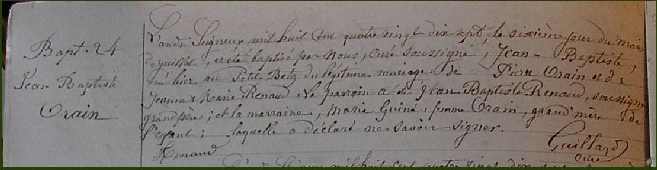 Bapt. 24
Jean Baptiste
Orain
L'an du Seigneur mil huit cent quatre vingt dix sept le sixième jour du mois
de juillet, a été baptisé par Nous, Curé soussigné, Jean-Baptiste,
né hier au Petit Betz du légitime mariage de Pierre Orain et de
Jeanne Marie Renaud. Le parrain a été Jean Baptiste Renaud, soussigné
grand père; et la marraine, Marie Guiné, femme Orain, grand'mère de
l'enfant; laquelle a déclaré ne savoir signer.
Renaud
Guillard
Curé
mil huit cent quatre vingt dix